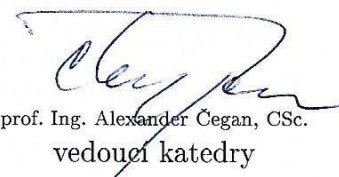 prof. Ing. Alexander Čegan, CSc.
vedoucí katedry